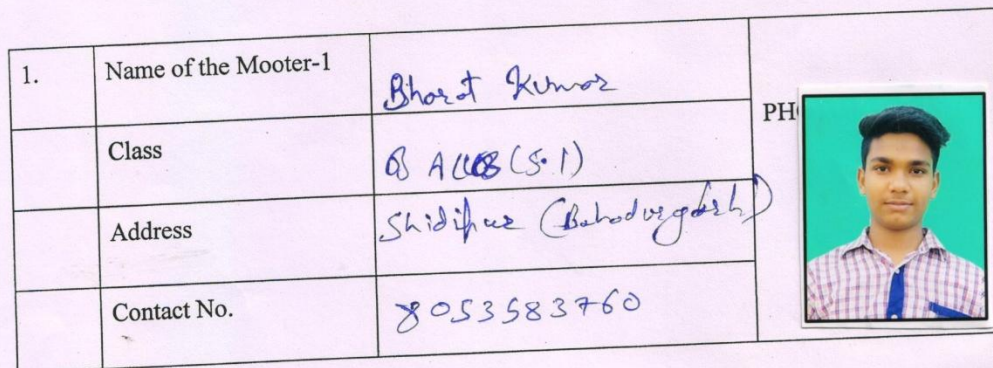 1. Name of the Mooter-1 Bharat Kumar PHO
Class BALLB (5.1)
Address Shidipur (Bahadurgarh)
Contact No. 8053583760